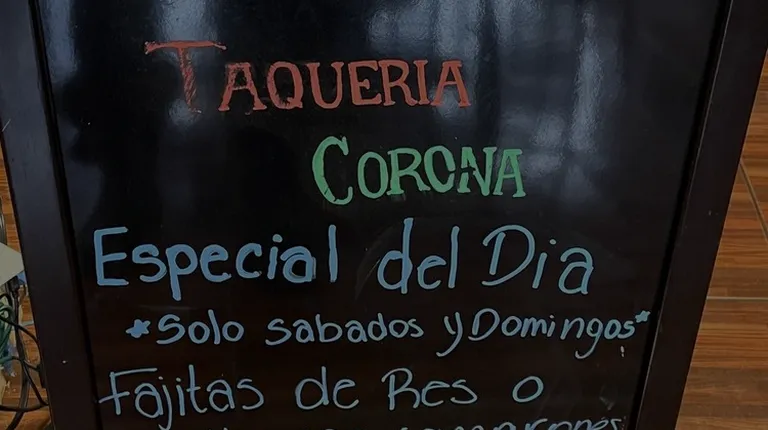 TAQUERIA
CORONA
Especial del Dia
*Solo sabados y Domingos*
Fajitas de Res o